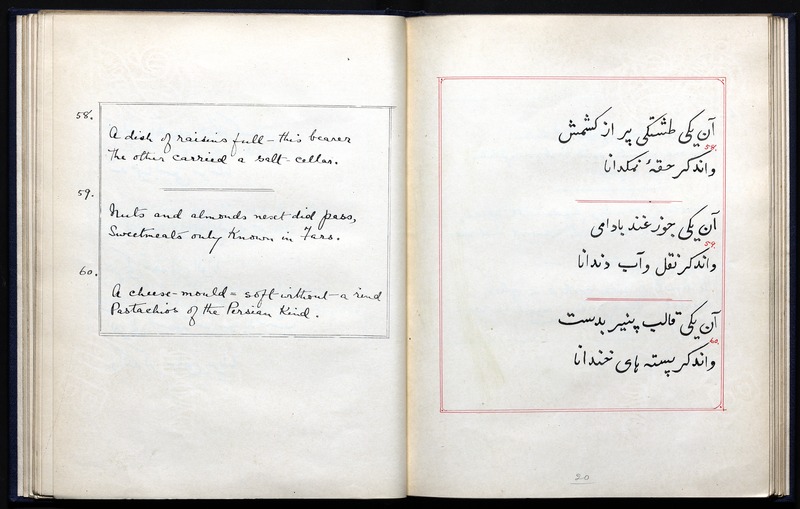 58.
A dish of raisins full - this bearer
The other carried a salt-cellar.
59.
Nuts and almonds next did pass,
Sweetmeats only Known in Fars.
60.
A cheese-mould = soft without a rind
Pastachios of the Persian Kind.
آن یکی طشتکی پر از کشمش
58.
واندگر حقهٔ نمکدانا
آن یکی جوزغند بادامی
59.
واندگر نقل وآب دندانا
آن یکی قالب پنیر بدست
60.
واندگر پسته های خندانا
20